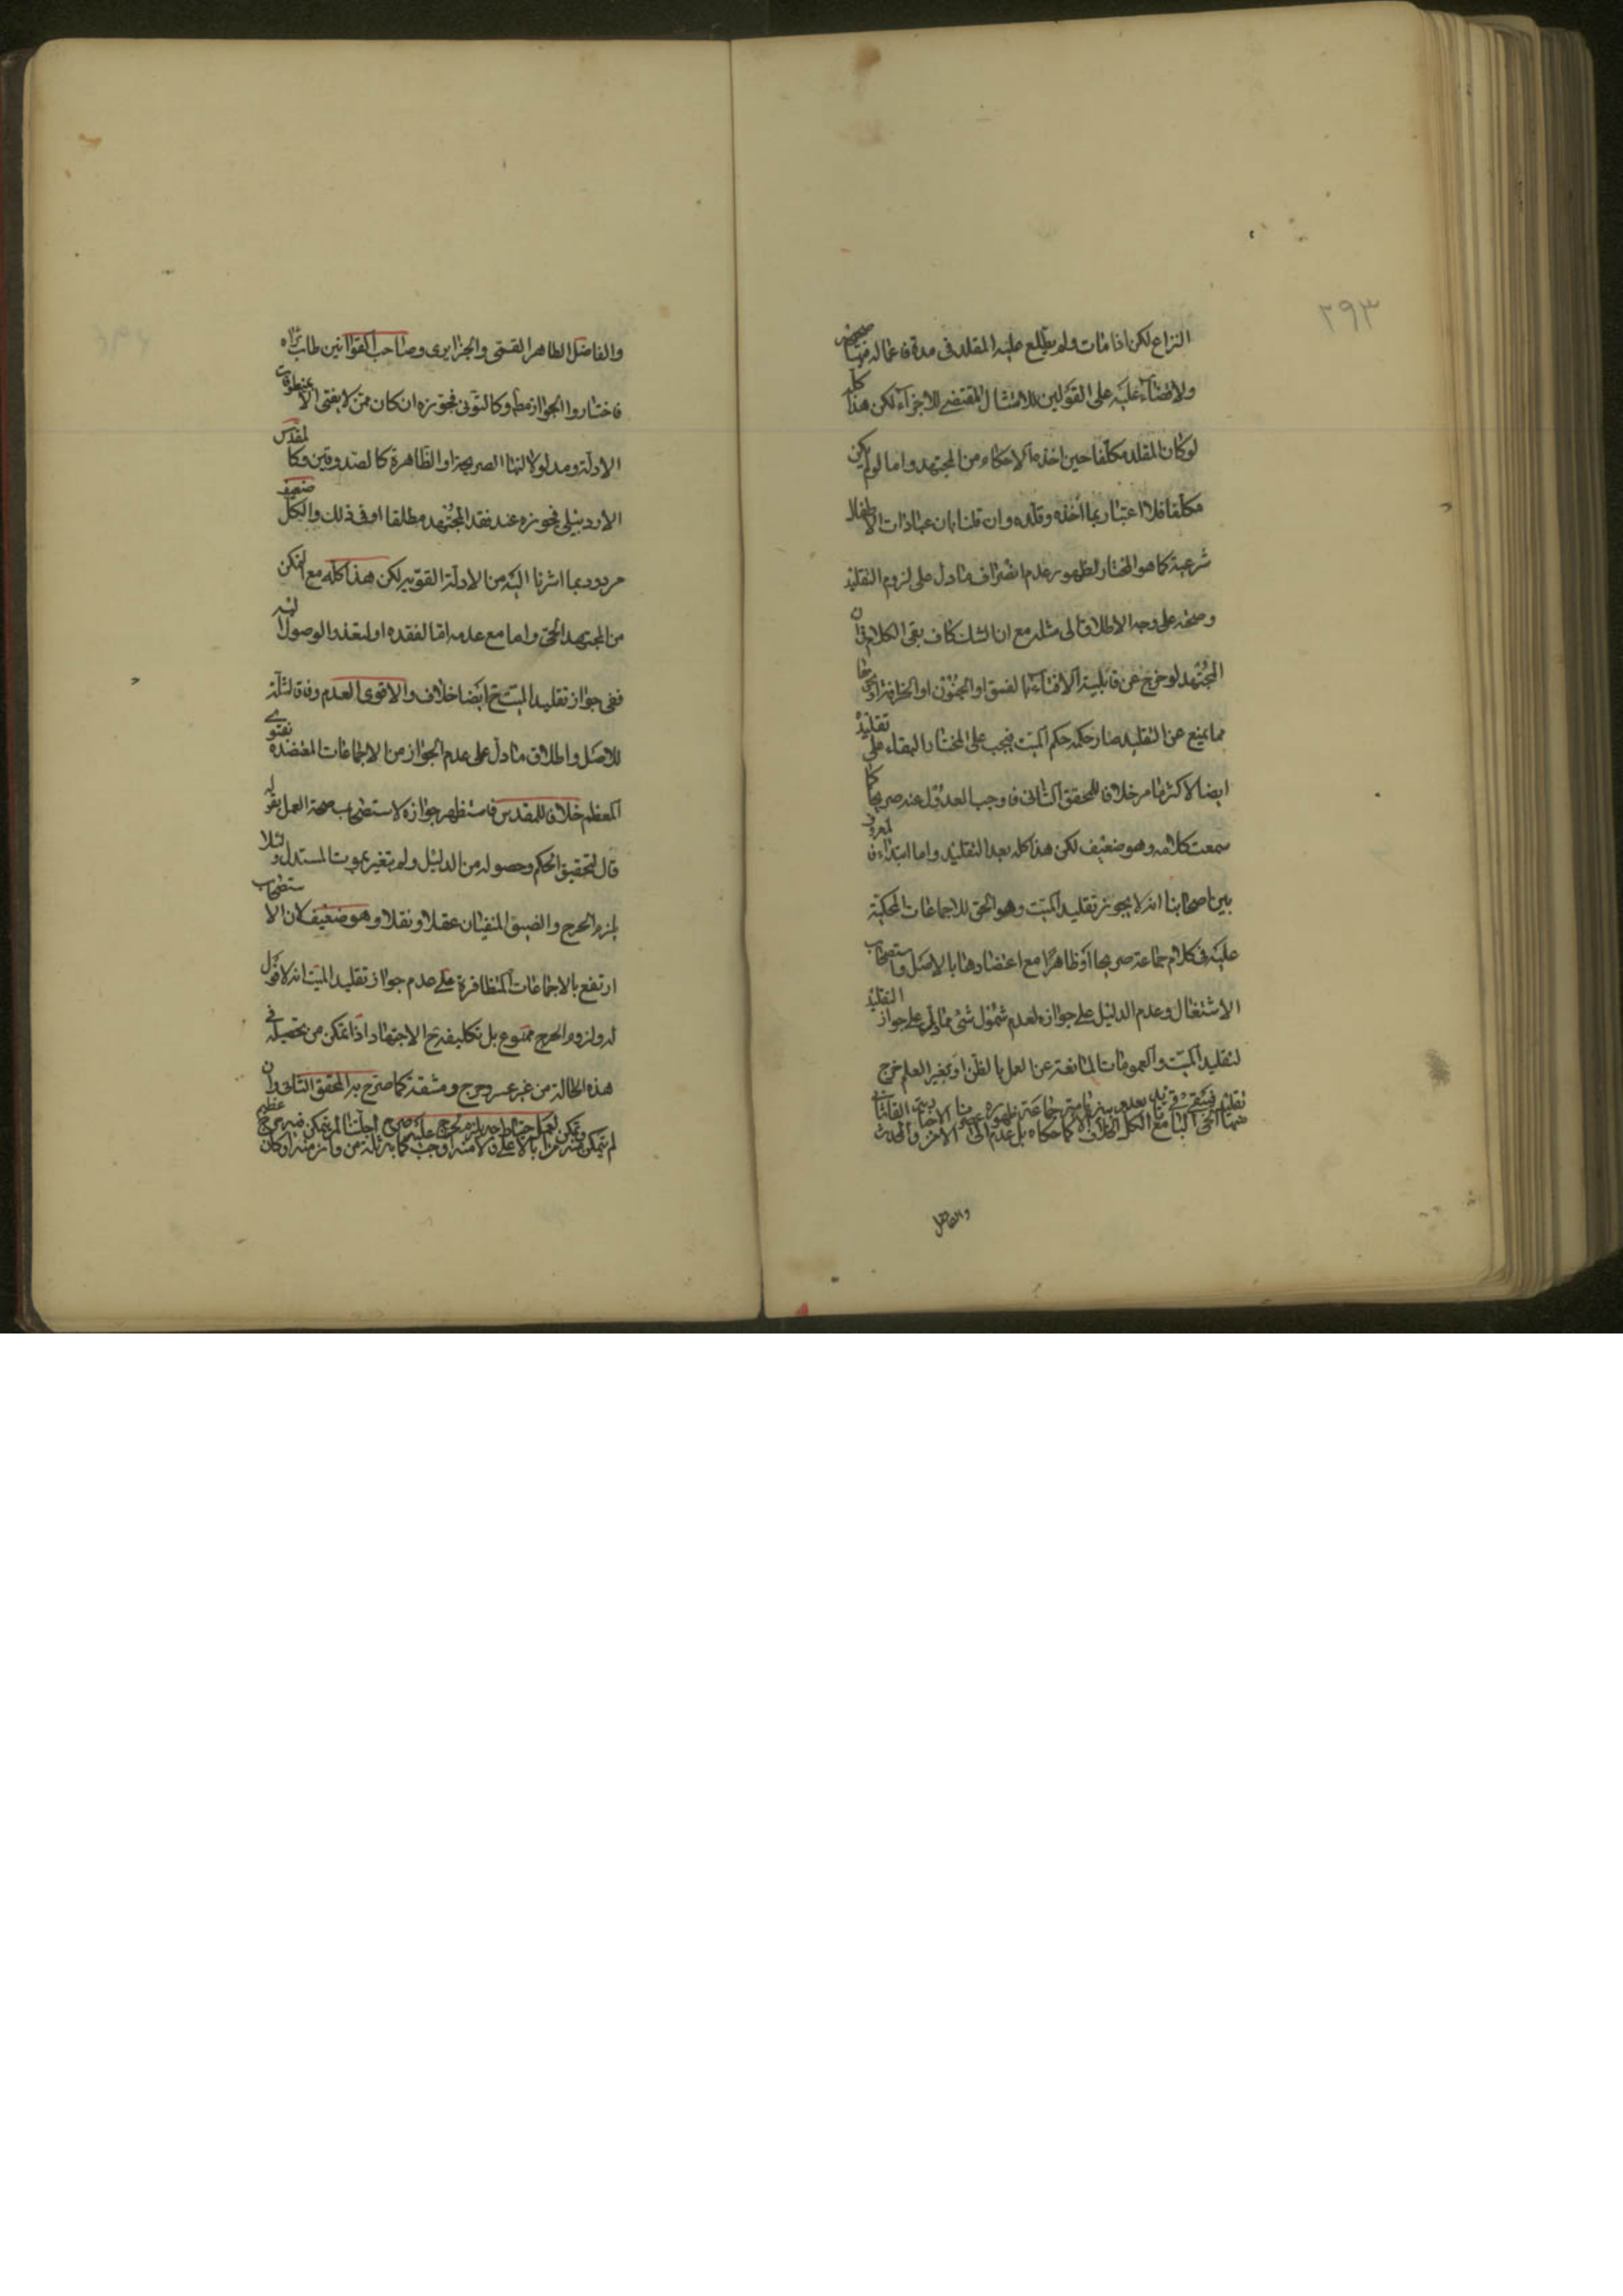 ٢٩٣
النزاع لكن اذا مات ولم يطلع عليه المقلد فى مدة فاعماله فيها صحيحة
ولا قضاء عليه على القولين للامتثال المقتضى للاجزاء لكن هذا كله
لو كان المقلد مكلفا حين اخذه الاحكام من المجتهد واما لو لم يكن
مكلفا فلا اعتبار بما اخذه وقلده وان قلنا بان عبادات الاطفال
شرعية كما هو المختار لظهور عدم انصراف ما دل على لزوم التقليد
وصحته على وجه الاطلاق الى مثله مع ان الشك كاف بقى الكلام فى ان
المجتهد لو خرج عن قابلية الافتاء بالفسق او الجنون او الخرافة او نحوها
مما يمنع عن التقليد صار حكمه حكم الميت فيجب على المختار البقاء على تقليده
ايضا لاكثر ما مر خلافا للمحقق الثانى فاوجب العدول عنه صريحا كما
سمعت كلامه وهو ضعيف لكن هذا كله بعد التقليد واما ابتداء فالمعروف
بين اصحابنا انه لا يجوز تقليد الميت وهو الحق للاجماعات المحكية
عليه فى كلام جماعة صريحا او ظاهرا مع اعتضادها بالاصل واستصحاب
الاشتغال وعدم الدليل على جوازه لعدم شمول شئ مما دل على جواز التقليد
لتقليد الميت والعمومات المانعة عن العمل بالظن او بغير العلم خرج
والفاضل
والفاضل الطاهر القمى والجزايرى وصاحب القوانين طاب ثراه
فاختاروا الجواز مط وكالتونى فجوزه ان كان ممن لا يفتى الا بمنطوقات
الادلة ومدلولاتها الصريحة او الظاهرة كالصدوقين وكالمقدس
الاردبيلى فجوزه عند فقد المجتهد مطلقا او فى ذلك والكل ضعيف
مردود بما اشرنا اليه من الادلة القوية لكن هذا كله مع التمكن
من المجتهد الحى واما مع عدمه اما لفقده او لتعذر الوصول اليه
ففى جواز تقليد الميت ح ايضا خلاف والاقوى العدم وفاقا لثلة
للاصل واطلاق ما دل على عدم الجواز من الاجماعات المعتضدة بفتوى
المعظم خلافا للمقدس فاستظهر جوازه لاستصحاب صحة العمل بقوله
قال لتحقيق الحكم وحصوله من الدليل ولم يتغير بموت المستدل ولئلا
يلزم الحرج والضيق المنفيان عقلا ونقلا وهو ضعيف لان الاستصحاب
ارتفع بالاجماعات المتظافرة على عدم جواز تقليد الميت انه لا قول
له ولزوم الحرج ممنوع بل تكليفه ح الاجتهاد اذا تمكن من تحصيله فى
هذه الحالة من غير عسر وحرج ومشقة كما صرح به المحقق الثانى وان